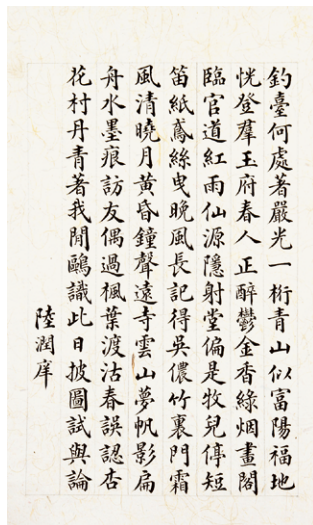 釣臺何處著嚴光一桁青山似富陽福地
恍登羣玉府春人正醉鬱金香綠烟畫閣
臨官道紅雨仙源隱射堂偏是牧兒停短
笛紙鳶絲曳晚風長記得吳儂竹裏門霜
風清曉月黃昏鐘聲遠寺雲山夢帆影扁
舟水墨痕訪友偶過楓葉渡沽春誤認杏
花村丹青著我閒鷗識此日披圖試與論
陸潤庠